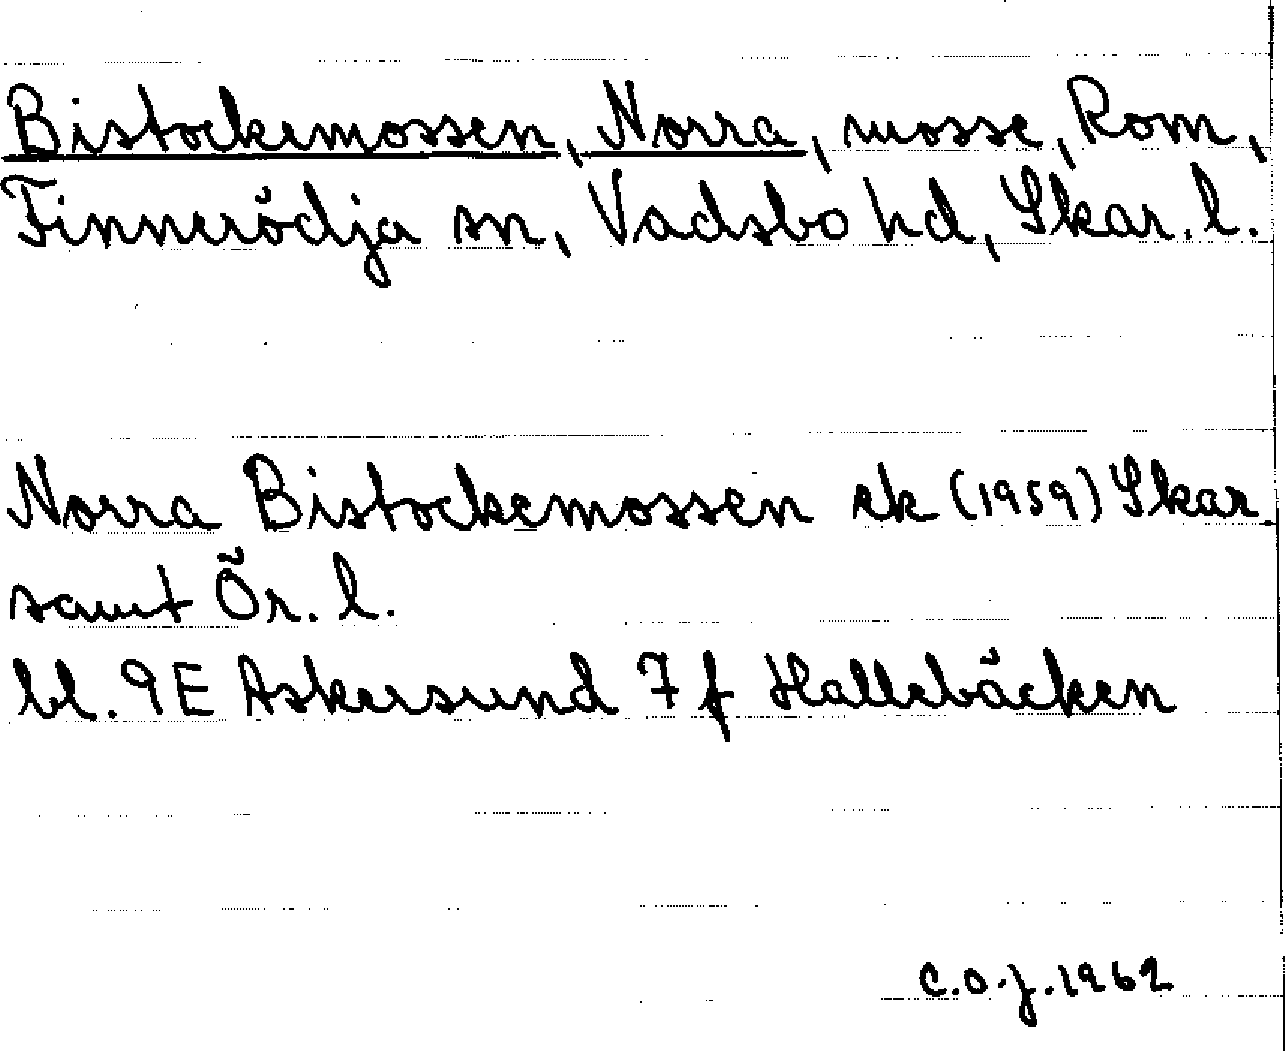 Bistockemossen, Norra, mosse, Rom,
Finnerödja sn, Vadsbo hd, Skar. l.
Norra Bistockemossen ek (1959) Skar
samt Ör. l.
bl. 9E Askersund 7f Hallebäcken
C.O.J. 1962